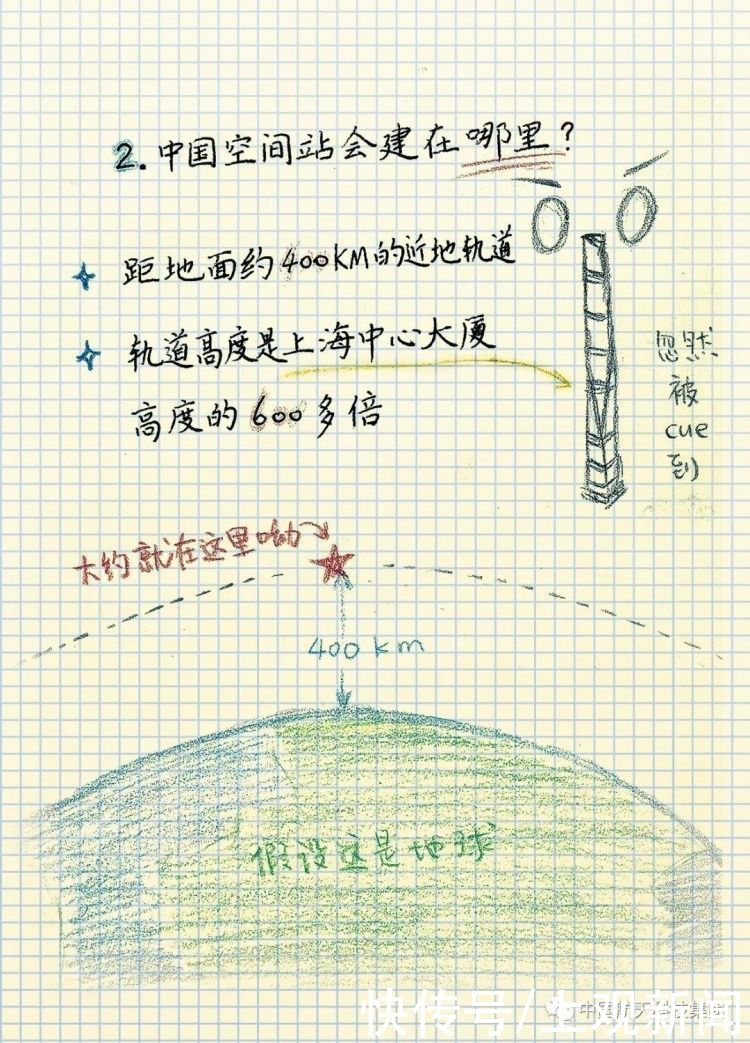 2. 中国空间站会建在哪里?
距地面约400KM的近地轨道
轨道高度是上海中心大厦
高度的600多倍
忽然
被
cue
到
大约就在这里呦~
400km
假设这是地球
中国航天科技集团
快传号/上观新闻